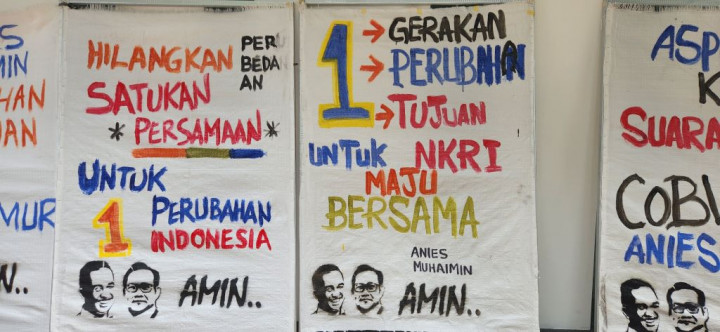 ES
MIN
HAN
UAN
MUR
N..
HILANGKAN PER
BEDA
AN
SATUKAN
* PERSAMAAN *
UNTUK
1 PERUBAHAN
INDONESIA
AMIN..
1 → GERAKAN
→ PERUBAHAN
→ TUJUAN
UNTUK NKRI
MAJU
BERSAMA
ANIES
MUHAIMIN
AMIN..
ASP
K
SUARA
ANIES